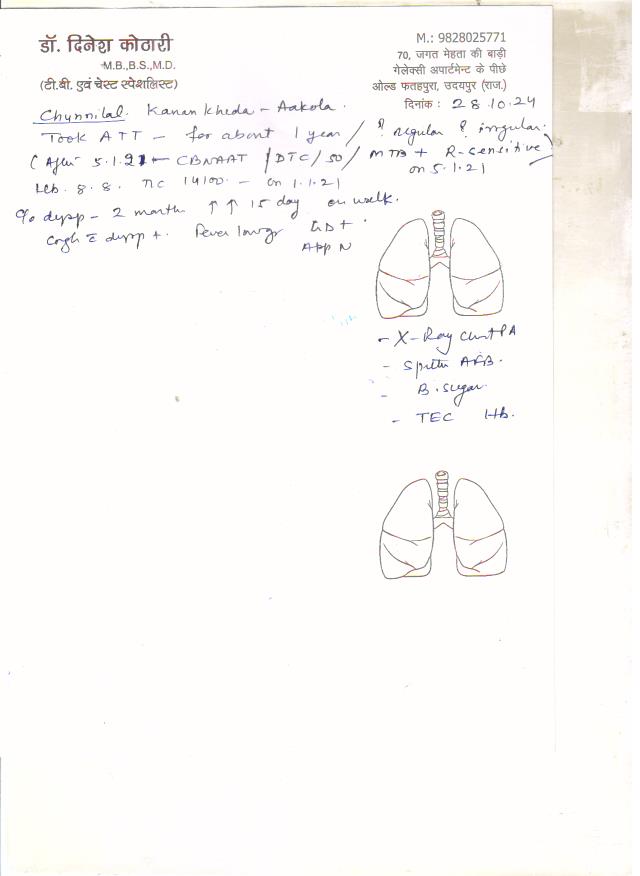 डॉ. दिनेश कोठारी
M.B.,B.S.,M.D.
(टी.बी. एवं चेस्ट स्पेशलिस्ट)
M.: 9828025771
70, जगत मेहता की बाड़ी
गेलेक्सी अपार्टमेन्ट के पीछे
ओल्ड फतहपुरा, उदयपुर (राज.)
दिनांक : 28.10.24
Chunnilal. Kanan kheda - Aakola.
Took ATT - for about 1 year / ? regular ? irregular.
(After 5.1.21 - CBNAAT / DTC / 50 / MTB + R-sensitive)
on 5.1.21
Hb. 8.8. TLC 14100. - on 1.1.21
C/o dysp - 2 month ↑↑ 15 day on walk.
Cough c̄ dysp +. Fever low gr
App N
- X-Ray Chest PA
- Sputum AFB.
- B. sugar.
- TEC Hb.